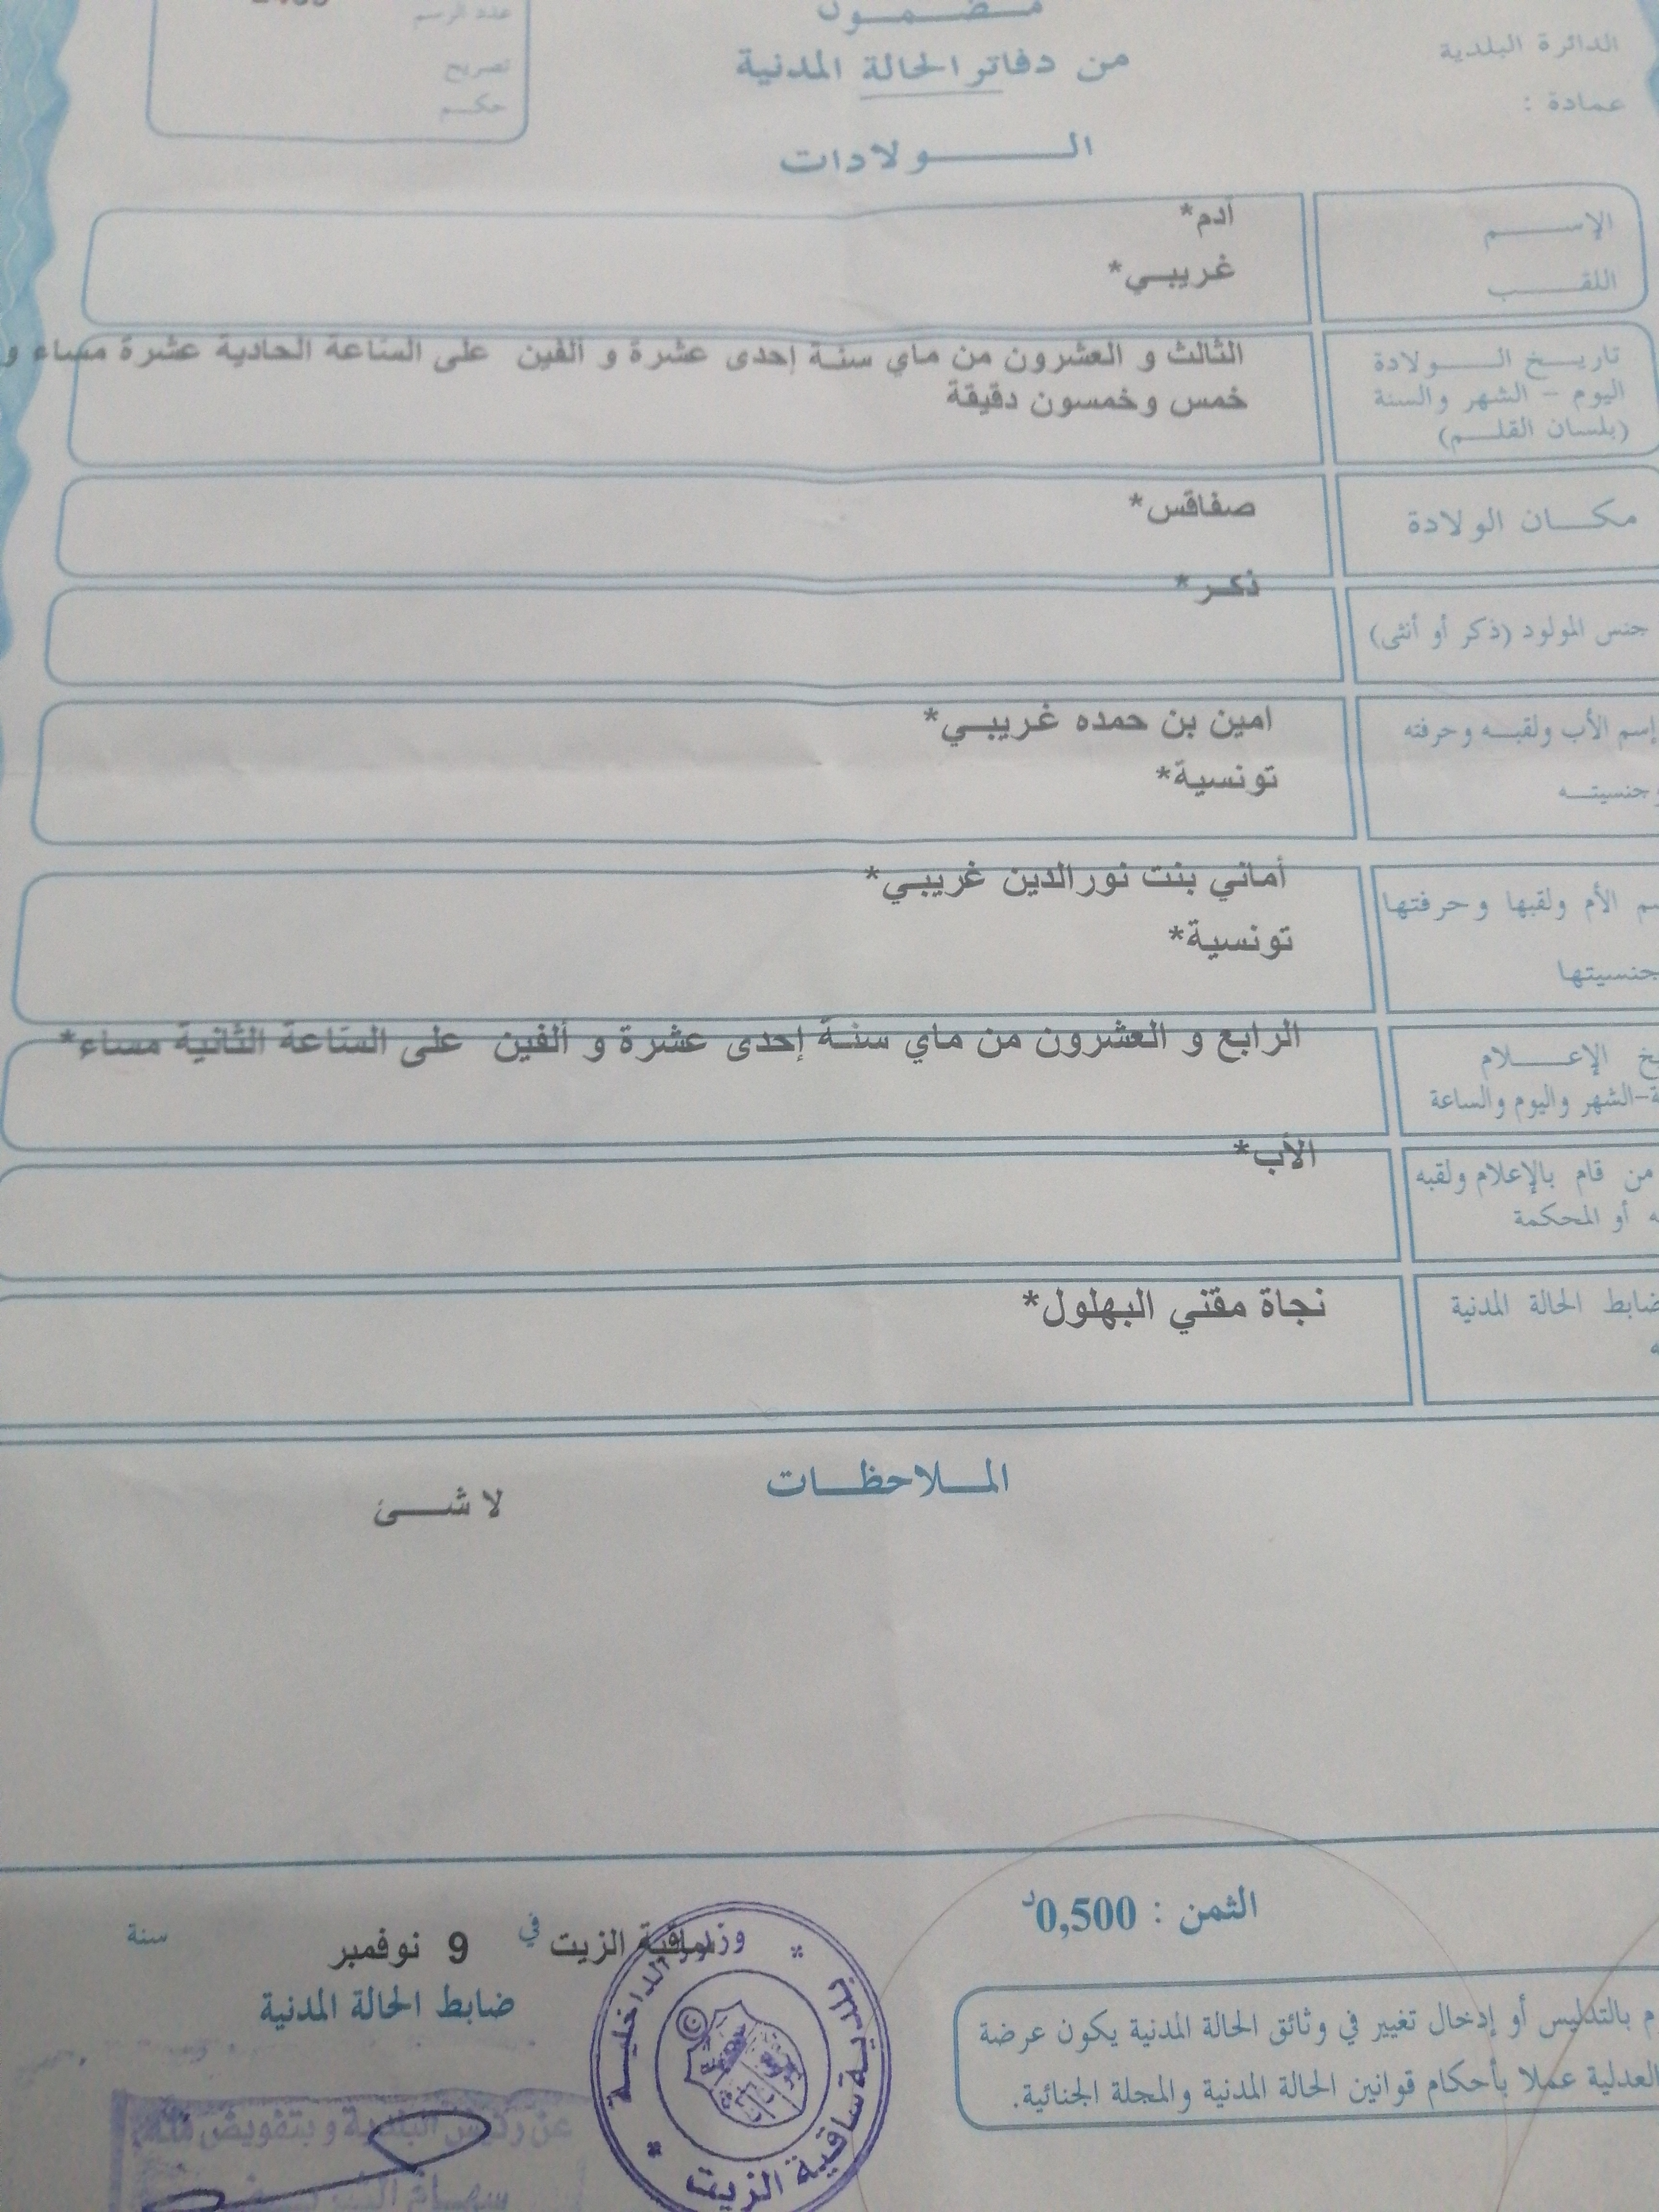 مضمون
من دفاتر الحالة المدنية
الولادات
الدائرة البلدية
عمادة :
عدد الرسم
تصريح
حكم
الإسم
آدم*
اللقب
غريبي*
تاريخ الولادة
اليوم - الشهر والسنة
(بلسان القلم)
الثالث و العشرون من ماي سنة إحدى عشرة و ألفين على الساعة الحادية عشرة مساء و
خمس وخمسون دقيقة
مكان الولادة
صفاقس*
جنس المولود (ذكر أو أنثى)
ذكر*
إسم الأب ولقبه وحرفته
وجنسيته
امين بن حمده غريبي*
تونسية*
سم الأم ولقبها وحرفتها
جنسيتها
أماني بنت نورالدين غريبي*
تونسية*
يخ الإعلام
ة-الشهر واليوم والساعة
الرابع و العشرون من ماي سنة إحدى عشرة و ألفين على الساعة الثانية مساء*
من قام بالإعلام ولقبه
ه أو المحكمة
الأب*
ضابط الحالة المدنية
ه
نجاة مقني البهلول*
الملاحظات
لا شئ
الثمن : 0,500د
ساقية الزيت في 9 نوفمبر سنة
ضابط الحالة المدنية
م بالتدليس أو إدخال تغيير في وثائق الحالة المدنية يكون عرضة
العدلية عملا بأحكام قوانين الحالة المدنية والمجلة الجنائية.
وزارة الداخلية
بلدية ساقية الزيت
عن رئيس البلدية و بتفويض منه
سهام